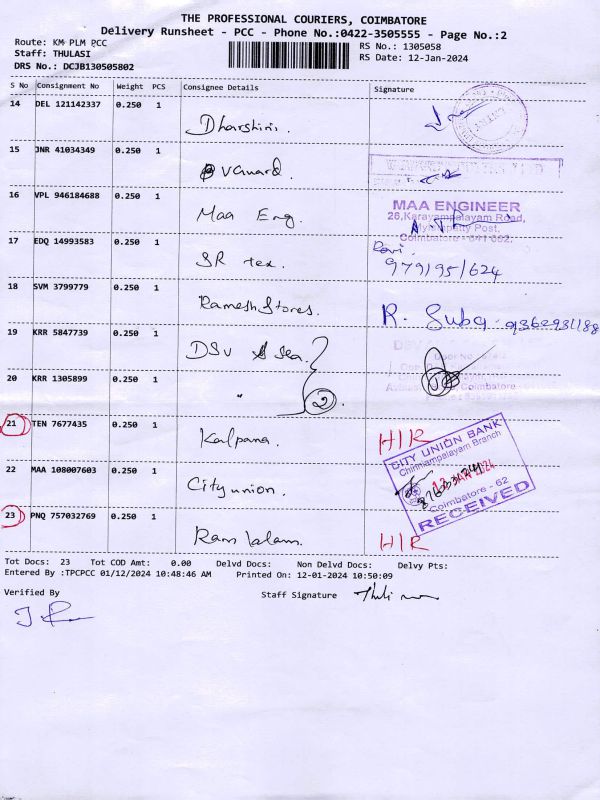 THE PROFESSIONAL COURIERS, COIMBATORE
Delivery Runsheet - PCC - Phone No.:0422-3505555 - Page No.:2
Route: KM PLM PCC
Staff: THULASI
DRS No.: DCJB130505802
RS No.: 1305058
RS Date: 12-Jan-2024
S No Consignment No Weight PCS Consignee Details Signature
14 DEL 121142337 0.250 1 Dharshini.
15 JNR 41034349 0.250 1 vanard.
16 VPL 946184688 0.250 1 Maa Eng.
MAA ENGINEER
26,Karayampalayam Road,
Mylampatty Post,
Coimbatore - 641 062.
17 EDQ 14993583 0.250 1 SR tex. Ravi
979195/624
18 SVM 3799779 0.250 1 Ramesh Stores. R. Suba
19 KRR 5847739 0.250 1 DSV Sea.
20 KRR 1305899 0.250 1 " 2.
21 TEN 7677435 0.250 1 Kalpana. H/R
CITY UNION BANK
Chinniampalayam Branch
12 JAN 2024
Coimbatore - 62
RECEIVED
22 MAA 108007603 0.250 1 City union.
23 PNQ 757032769 0.250 1 H/R
Tot Docs: 23 Tot COD Amt: 0.00 Delvd Docs: Non Delvd Docs: Delvy Pts:
Entered By :TPCPCC 01/12/2024 10:48:46 AM Printed On: 12-01-2024 10:50:09
Verified By
Staff Signature